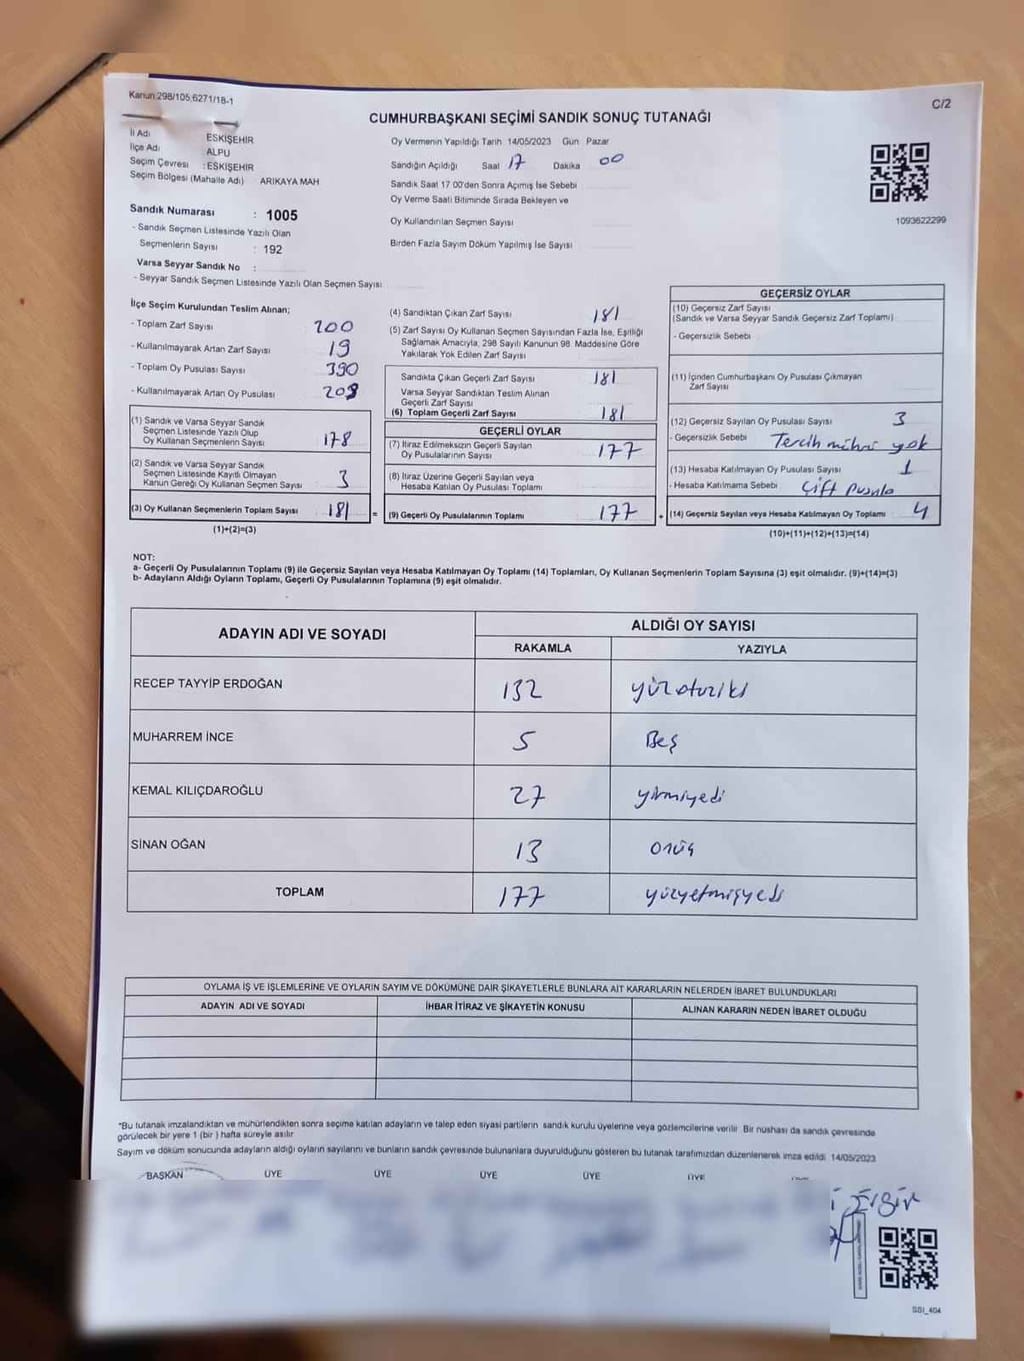 Kanun:298/105;6271/18-1
C/2
CUMHURBAŞKANI SEÇİMİ SANDIK SONUÇ TUTANAĞI
İl Adı ESKİŞEHİR
İlçe Adı ALPU
Seçim Çevresi : ESKİŞEHİR
Seçim Bölgesi (Mahalle Adı) ARIKAYA MAH
Oy Vermenin Yapıldığı Tarih 14/05/2023 Gün Pazar
Sandığın Açıldığı Saat 17 Dakika 00
Sandık Saat 17 00'den Sonra Açılmış İse Sebebi
Oy Verme Saati Bitiminde Sırada Bekleyen ve
Oy Kullandırılan Seçmen Sayısı
Birden Fazla Sayım Döküm Yapılmış İse Sayısı
1093622299
Sandık Numarası : 1005
- Sandık Seçmen Listesinde Yazılı Olan
Seçmenlerin Sayısı : 192
Varsa Seyyar Sandık No :
- Seyyar Sandık Seçmen Listesinde Yazılı Olan Seçmen Sayısı
İlçe Seçim Kurulundan Teslim Alınan;
- Toplam Zarf Sayısı 200
- Kullanılmayarak Artan Zarf Sayısı 19
- Toplam Oy Pusulası Sayısı 390
- Kullanılmayarak Artan Oy Pusulası 208
(1) Sandık ve Varsa Seyyar Sandık
Seçmen Listesinde Yazılı Olup
Oy Kullanan Seçmenlerin Sayısı 178
(2) Sandık ve Varsa Seyyar Sandık
Seçmen Listesinde Kayıtlı Olmayan
Kanun Gereği Oy Kullanan Seçmen Sayısı 3
(3) Oy Kullanan Seçmenlerin Toplam Sayısı 181 =
(1)+(2)=(3)
(4) Sandıktan Çıkan Zarf Sayısı 181
(5) Zarf Sayısı Oy Kullanan Seçmen Sayısından Fazla İse, Eşitliği
Sağlamak Amacıyla, 298 Sayılı Kanunun 98. Maddesine Göre
Yakılarak Yok Edilen Zarf Sayısı
Sandıkta Çıkan Geçerli Zarf Sayısı 181
Varsa Seyyar Sandıktan Teslim Alınan
Geçerli Zarf Sayısı
(6) Toplam Geçerli Zarf Sayısı 181
GEÇERLİ OYLAR
(7) İtiraz Edilmeksizin Geçerli Sayılan
Oy Pusulalarının Sayısı 177
(8) İtiraz Üzerine Geçerli Sayılan veya
Hesaba Katılan Oy Pusulası Toplamı
(9) Geçerli Oy Pusulalarının Toplamı 177 +
GEÇERSİZ OYLAR
(10) Geçersiz Zarf Sayısı
(Sandık ve Varsa Seyyar Sandık Geçersiz Zarf Toplamı)
- Geçersizlik Sebebi
(11) İçinden Cumhurbaşkanı Oy Pusulası Çıkmayan
Zarf Sayısı
(12) Geçersiz Sayılan Oy Pusulası Sayısı 3
- Geçersizlik Sebebi Tercih mührü yok
(13) Hesaba Katılmayan Oy Pusulası Sayısı 1
- Hesaba Katılmama Sebebi Çift Pusula
(14) Geçersiz Sayılan veya Hesaba Katılmayan Oy Toplamı 4
(10)+(11)+(12)+(13)=(14)
NOT:
a- Geçerli Oy Pusulalarının Toplamı (9) ile Geçersiz Sayılan veya Hesaba Katılmayan Oy Toplamı (14) Toplamları, Oy Kullanan Seçmenlerin Toplam Sayısına (3) eşit olmalıdır. (9)+(14)=(3)
b- Adayların Aldığı Oyların Toplamı, Geçerli Oy Pusulalarının Toplamına (9) eşit olmalıdır.
ADAYIN ADI VE SOYADI
ALDIĞI OY SAYISI
RAKAMLA YAZIYLA
RECEP TAYYİP ERDOĞAN 132 yüzotuziki
MUHARREM İNCE 5 Beş
KEMAL KILIÇDAROĞLU 27 yirmiyedi
SİNAN OĞAN 13 onüç
TOPLAM 177 yüzyetmişyedi
OYLAMA İŞ VE İŞLEMLERİNE VE OYLARIN SAYIM VE DÖKÜMÜNE DAİR ŞİKAYETLERLE BUNLARA AİT KARARLARIN NELERDEN İBARET BULUNDUKLARI
ADAYIN ADI VE SOYADI İHBAR İTİRAZ VE ŞİKAYETİN KONUSU ALINAN KARARIN NEDEN İBARET OLDUĞU
*Bu tutanak imzalandıktan ve mühürlendikten sonra seçime katılan adayların ve talep eden siyasi partilerin sandık kurulu üyelerine veya gözlemcilerine verilir. Bir nüshası da sandık çevresinde
görülecek bir yere 1 (bir) hafta süreyle asılır
Sayım ve döküm sonucunda adayların aldığı oyların sayılarını ve bunların sandık çevresinde bulunanlara duyurulduğunu gösteren bu tutanak tarafımızdan düzenlenerek imza edildi. 14/05/2023
BAŞKAN ÜYE ÜYE ÜYE ÜYE ÜYE
SBI_404